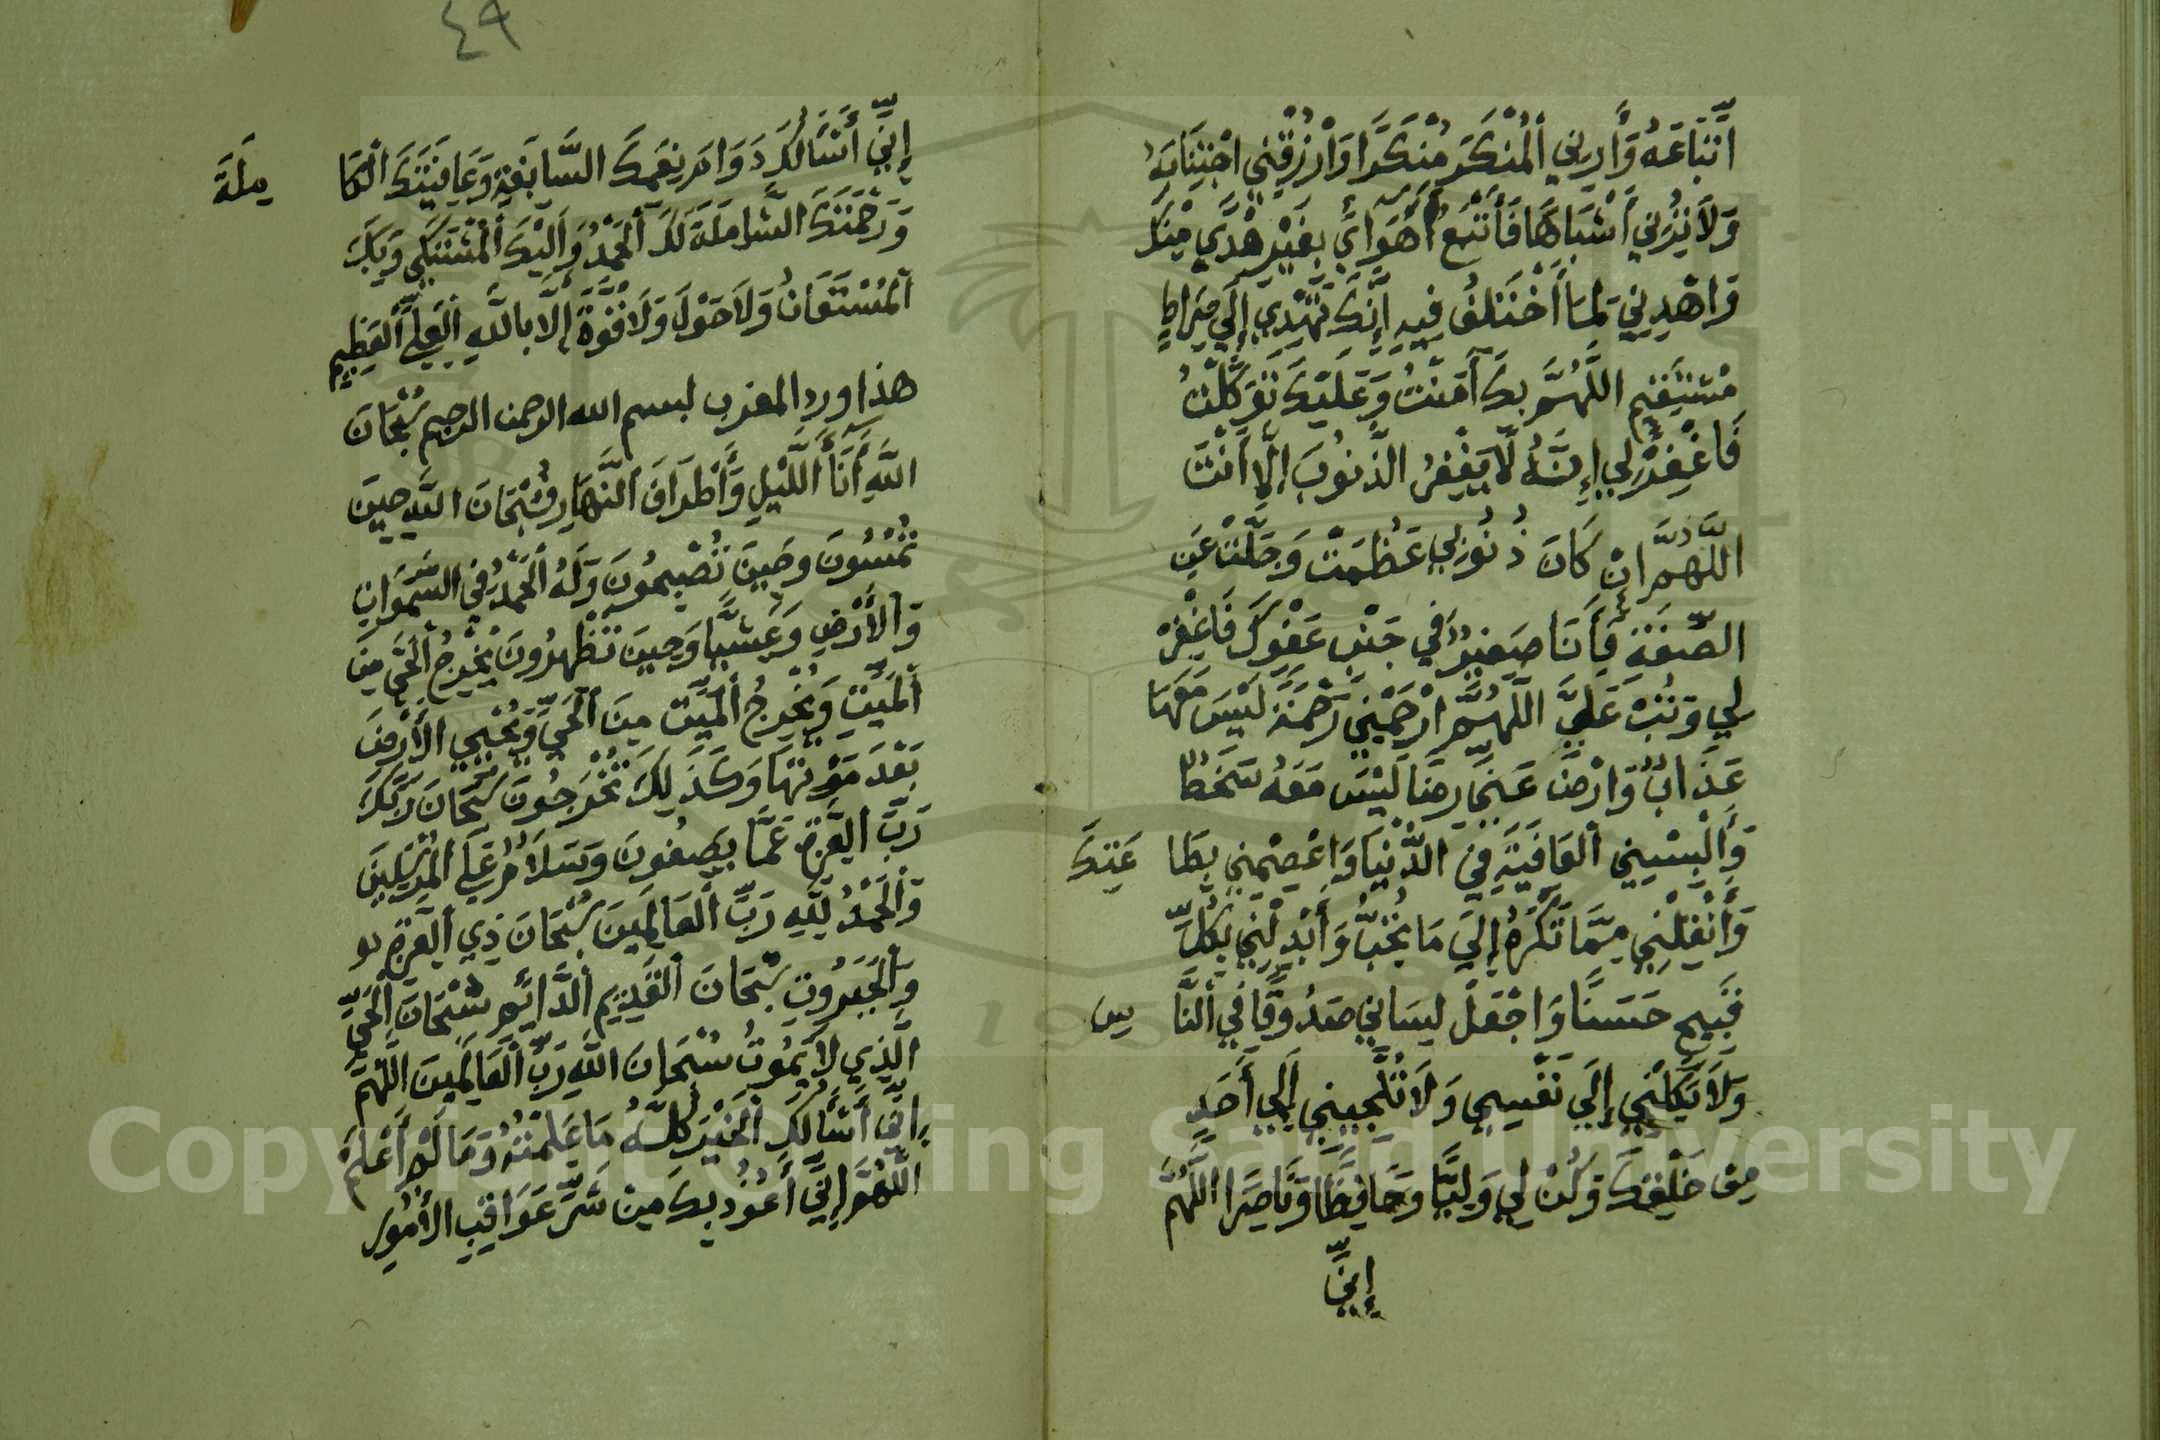 اتِّبَاعَهُ وَأَرِنِي الْمُنْكَرَ مُنْكَرًا وَارْزُقْنِي اجْتِنَابَهُ
وَلاَ تَزِرْنِي أَشْبَاهَهَا فَأَتَّبِعُ أَهْوَائِي بِغَيْرِ هُدًى مِنْكَ
وَاهْدِنِي لِمَا أَخْتَلِفُ فِيهِ إِنَّكَ تَهْدِي إِلَى صِرَاطٍ
مُسْتَقِيمٍ اللَّهُمَّ بِكَ آمَنْتُ وَعَلَيْكَ تَوَكَّلْتُ
فَاغْفِرْ لِي إِنَّهُ لَا يَغْفِرُ الذُّنُوبَ إِلَّا أَنْتَ
اللَّهُمَّ إِنْ كَانَ ذُنُوبِي عَظُمَتْ وَجَلَّتْ عَنِ
الصِّفَةِ فَأَنَا صَغِيرٌ فِي جَنْبِ عَفْوِكَ فَاغْفِرْ
لِي وَتُبْ عَلَيَّ اللَّهُمَّ ارْحَمْنِي رَحْمَةً لَيْسَ مَعَهَا
عَذَابٌ وَارْضَ عَنِّي رِضًا لَيْسَ مَعَهُ سَخَطٌ
وَأَلْبِسْنِي الْعَافِيَةَ فِي الدُّنْيَا وَاعْصِمْنِي بِطَا عَتِكَ
وَأَنْقِلْنِي مِمَّا تَكْرَهُ إِلَى مَا تُحِبُّ وَأَبْدِلْنِي بِكُلِّ
قَبِيحٍ حَسَنًا وَاجْعَلْ لِسَانِي صَدُوقًا فِي النَّا سِ
وَلَا تَكِلْنِي إِلَى نَفْسِي وَلَا تُلْجِينِي إِلَى أَحَدٍ
مِنْ خَلْقِكَ وَكُنْ لِي وَلِيًّا وَحَافِظًا وَنَاصِرًا اللَّهُمَّ
إِنِّي
٤٩
إِنِّي أَسْأَلُكَ دَوَامَ نِعَمِكَ السَّابِغَةِ وَعَافِيَتِكَ الْكَا مِلَةَ
وَرَحْمَتِكَ الشَّامِلَةَ لَكَ الْحَمْدُ وَإِلَيْكَ الْمُشْتَكَى وَبِكَ
الْمُسْتَعَانُ وَلَا حَوْلَ وَلَا قُوَّةَ إِلَّا بِاللَّهِ الْعَلِيِّ الْعَظِيمِ
هذا ورد المغرب بسم الله الرحمن الرحيم سُبْحَانَ
اللَّهِ أَنَاَ اللَّيْلِ وَأَطْرَافَ النَّهَارِ سُبْحَانَ اللَّهِ حِينَ
تُمْسُونَ وَحِينَ تُصْبِحُونَ وَلَهُ الْحَمْدُ فِي السَّمَوَاتِ
وَالْأَرْضِ وَعَشِيًّا وَحِينَ تُظْهِرُونَ يُخْرِجُ الْحَيَّ مِنَ
الْمَيِّتِ وَيُخْرِجُ الْمَيِّتَ مِنَ الْحَيِّ وَيُحْيِي الْأَرْضَ
بَعْدَ مَوْتِهَا وَكَذَلِكَ تُخْرَجُونَ سُبْحَانَ رَبِّكَ
رَبِّ الْعِزَّةِ عَمَّا يَصِفُونَ وَسَلَامٌ عَلَى الْمُرْسَلِينَ
وَالْحَمْدُ لِلَّهِ رَبِّ الْعَالَمِينَ سُبْحَانَ ذِي الْعِزَّةِ
وَالْجَبَرُوتِ سُبْحَانَ الْقَدِيمِ الدَّائِمِ سُبْحَانَ الْحَيِّ
الَّذِي لَا يَمُوتُ سُبْحَانَ اللَّهِ رَبِّ الْعَالَمِينَ اللَّهُمَّ
إِنِّي أَسْأَلُكَ الْخَيْرَ كُلَّهُ مَا عَلِمْتُهُ وَمَا لَمْ أَعْلَمْ
اللَّهُمَّ إِنِّي أَعُوذُ بِكَ مِنْ شَرِّ عَوَاقِبِ الْأُمُورِ
Copyright © King Saud University